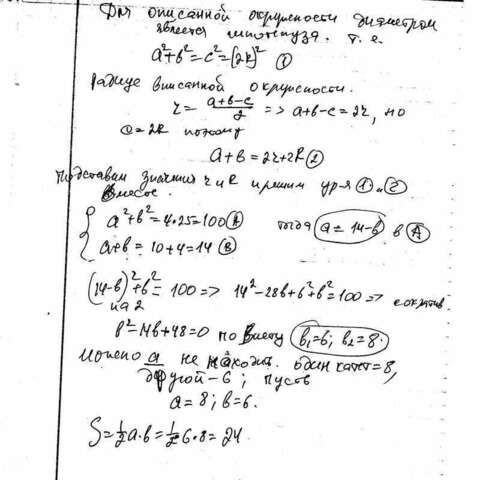 Для описанной окружности диаметром
является гипотенуза. т.е.
a²+b²=c²=(2R)² ①
Радиус вписанной окружности.
r=(a+b-c)/2 => a+b-c=2r, но
c=2R поэтому
a+b=2r+2R ②
Подставим значения r и R и решим ур-я ① и ②
вместе.
{ a²+b²=4·25=100 Ⓐ
a+b=10+4=14 Ⓑ
тогда a=14-b в Ⓐ
(14-b)²+b²=100 => 14²-28b+b²+b²=100 => сократив
на 2
b²-14b+48=0 по Виету b₁=6; b₂=8.
Можно a не находить. один катет=8,
другой-6; пусть
a=8; b=6.
S=½a·b=½6·8=24